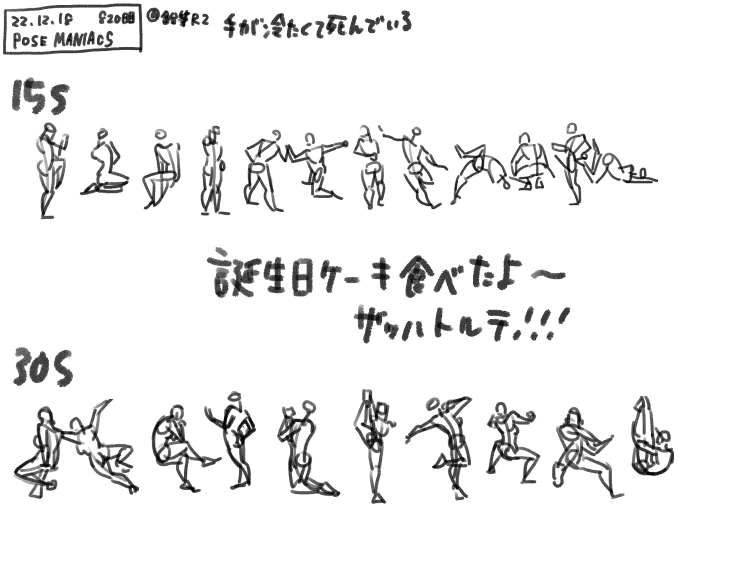 22.12.18 820日目
POSE MANIACS
鉛筆R2 手が冷たくて死んでいる
15S
誕生日ケーキ食べたよ〜
ザッハトルテ!!!
30S